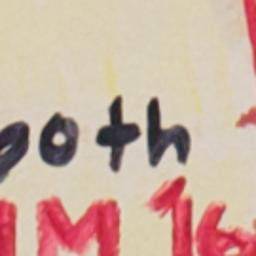 oth
M 16